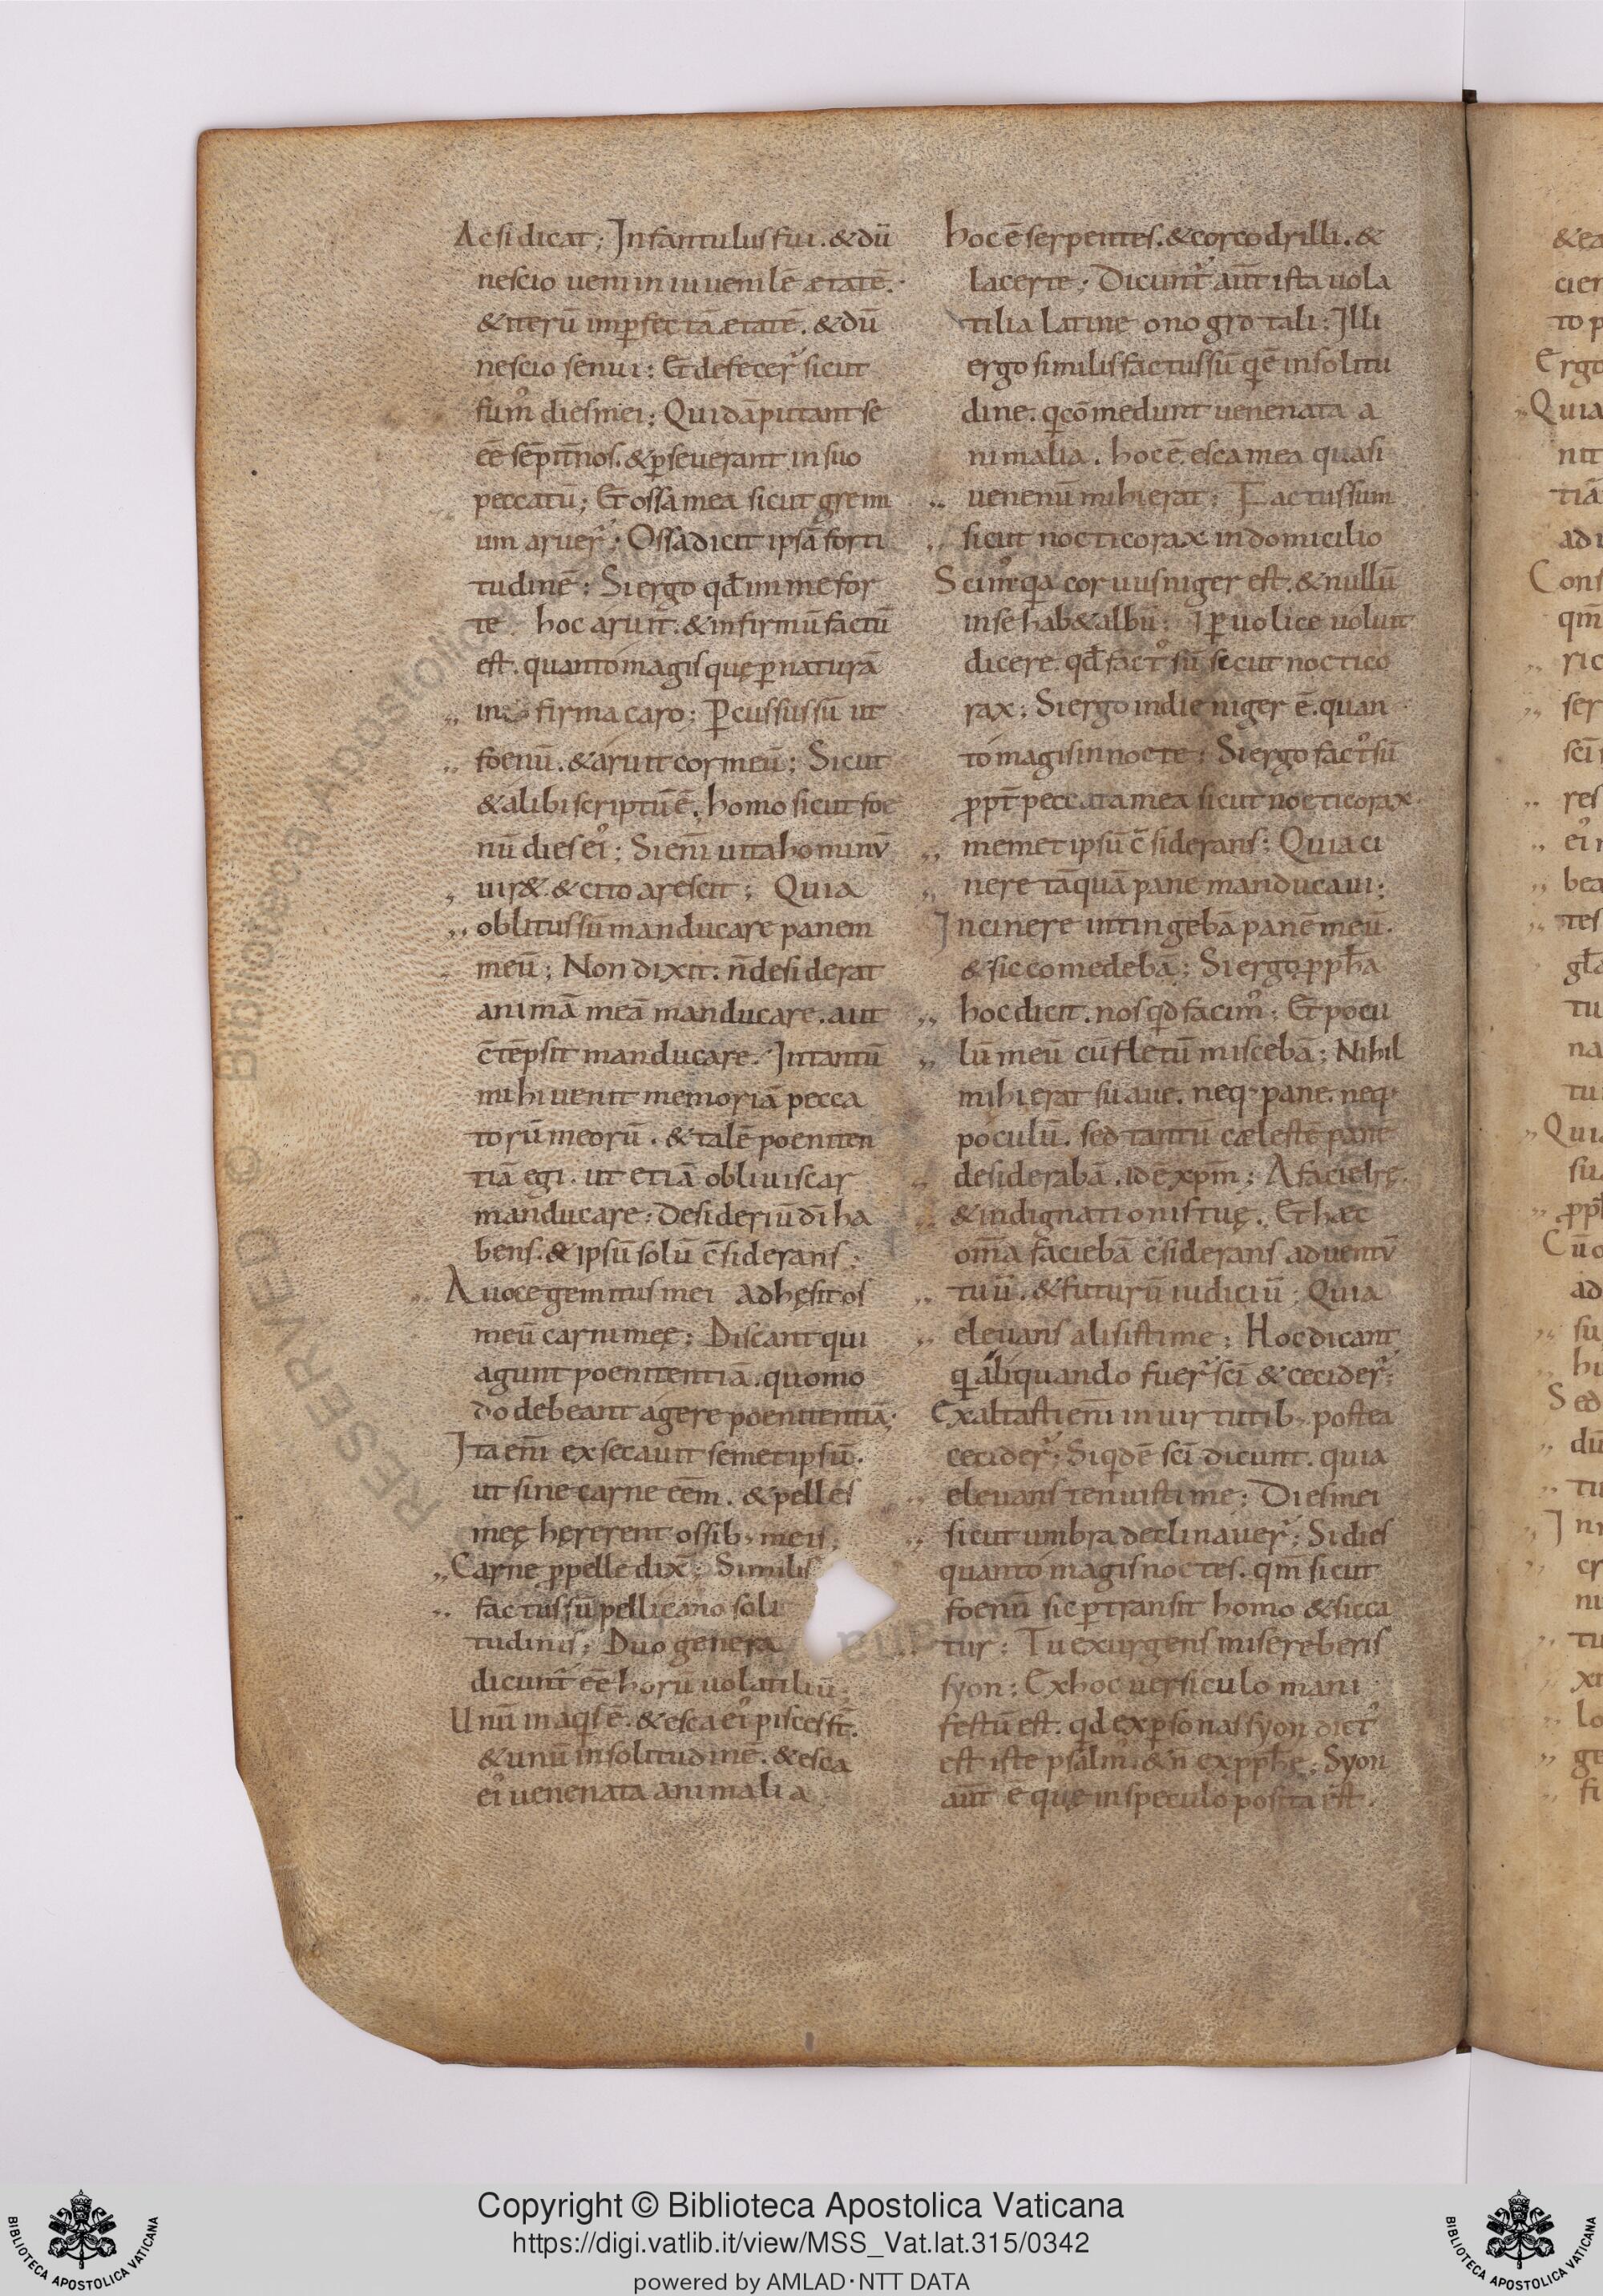 Ac si dicat; Infantulus fui. & dū
nescio ueni in iuuenilē ætatē.
& iterū imꝑfectā etatē. & dū
nescio senui: Et defecer̄ sicut
fumꝰ dies mei; Quidā putant se
eē sēpit̄nos. & ꝑseuerant in suo
peccatū; Et ossa mea sicut gremi
um aruer̄; Ossa dicit ipsā forti
tudinē; Si ergo qđ in me for
te hoc aruit. & infirmū factū
est. quanto magis quę ꝑ naturā
in firma caro; Ꝑcussus sū ut
foenū. & aruit cor meū; Sicut
& alibi scriptū ē. homo sicut foe
nū dies eiꝰ; Sic eni uita hominū
uir&. & cito arescit; Quia
oblitus sū manducare panem
meū; Non dixit. n̄ desiderat
animā meā manducare. aut
c̄tēpsit manducare. Intantū
mihi uenit memoriā pecca
torū meorū. & talē poeniten
tiā egi. ut etiā obliuiscar
manducare; Desideriū dī ha
bens. & ipsū solū c̄siderans;
A uoce gemitus mei adhęsit os
meū carni męę; Discant qui
agunt poenitentiā. quomo
do debeant agere poenitentiā;
Ita eni exsecauit semetipsū.
ut sine carne eēm. & pelles
męę hęrerent ossib; meis;
Carne ꝓ pelle dix̄; Similis
factus sū pellicano soli
tudinis; Duo genera
dicunt̄ eē horū uolatiliū;
Unū in aqis ē. & esca eiꝰ pisces st̄.
& unū in solitudinē. & esca
eiꝰ uenenata animalia
hoc ē serpentes. & corcodrilli. &
lacerte; Dicunt̄ aūt ista uola
tilia latine onogrotali; Illi
ergo similis factus sū qͥ ē in solitu
dine. qͥ comedunt uenenata a
nimalia. hoc ē. esca mea quasi
uenenū mihi erat; Factus sum
sicut nocticorax in domicilio
Scimꝰ qͥa coruus niger est. & nullū
in se hab& albū; Iꝑuolice uoluit
dicere. qđ factꝰ sū sicut noctico
rax; Si ergo in die niger ē. quan
to magis in nocte; Si ergo factꝰ sū
ꝓpt̄ peccata mea sicut nocticorax
memet ipsū c̄siderans; Quia ci
nere tāquā pane manducaui;
In cinere intingebā panē meū.
& sic comedebā; Si ergo ꝓph̄a
hoc dicit. nos qͥd facimꝰ; Et pocu
lū meū cū fletū miscebā; Nihil
mihi erat suaue. neq; pane. neq;
poculū. sed tantū cælestē panē
desiderabā. id ē xp̄m; A facie irę
& indignationis tuę. Et hæc
om̄a faciebā c̄siderans aduentū
tuū. & futurū iudiciū; Quia
eleuans alisisti me; Hoc dicant
qͥ aliquando fuer̄ sc̄i & cecider̄;
Exaltasti eni in uirtutib; postea
cecider̄; Siqͥdē sc̄i dicunt. quia
eleuans tenuisti me; Dies mei
sicut umbra declinauer̄; Si dies
quanto magis noctes. qm̄ sicut
foenū sic ꝑtransit homo & sicca
tur; Tu exurgens misereberis
syon; Ex hoc uersiculo mani
festū est. qđ ex ꝑsonas syon dictꝰ
est iste psalmꝰ. & n̄ ex ꝓph̄ę; Syon
aūt ē quę in speculo posita est.
&ea
cien
to p
Ergo
Quia
nit
tiā
ad i
Cons
qm̄
ric
ser
sc̄i
res
eiꝰ
bea
tes
gl̄a
tu
na
tu
Quia
su
ꝓph̄
Cū
ad
su
hu
Sed
dū
tu
In
cr
nu
tu
xi
lo
ge
fi
RESERVED © Biblioteca Apostolica Vaticana
Copyright © Biblioteca Apostolica Vaticana
https://digi.vatlib.it/view/MSS_Vat.lat.315/0342
powered by AMLAD·NTT DATA
BIBLIOTECA APOSTOLICA VATICANA
BIBLIOTECA APOSTOLICA VATICANA